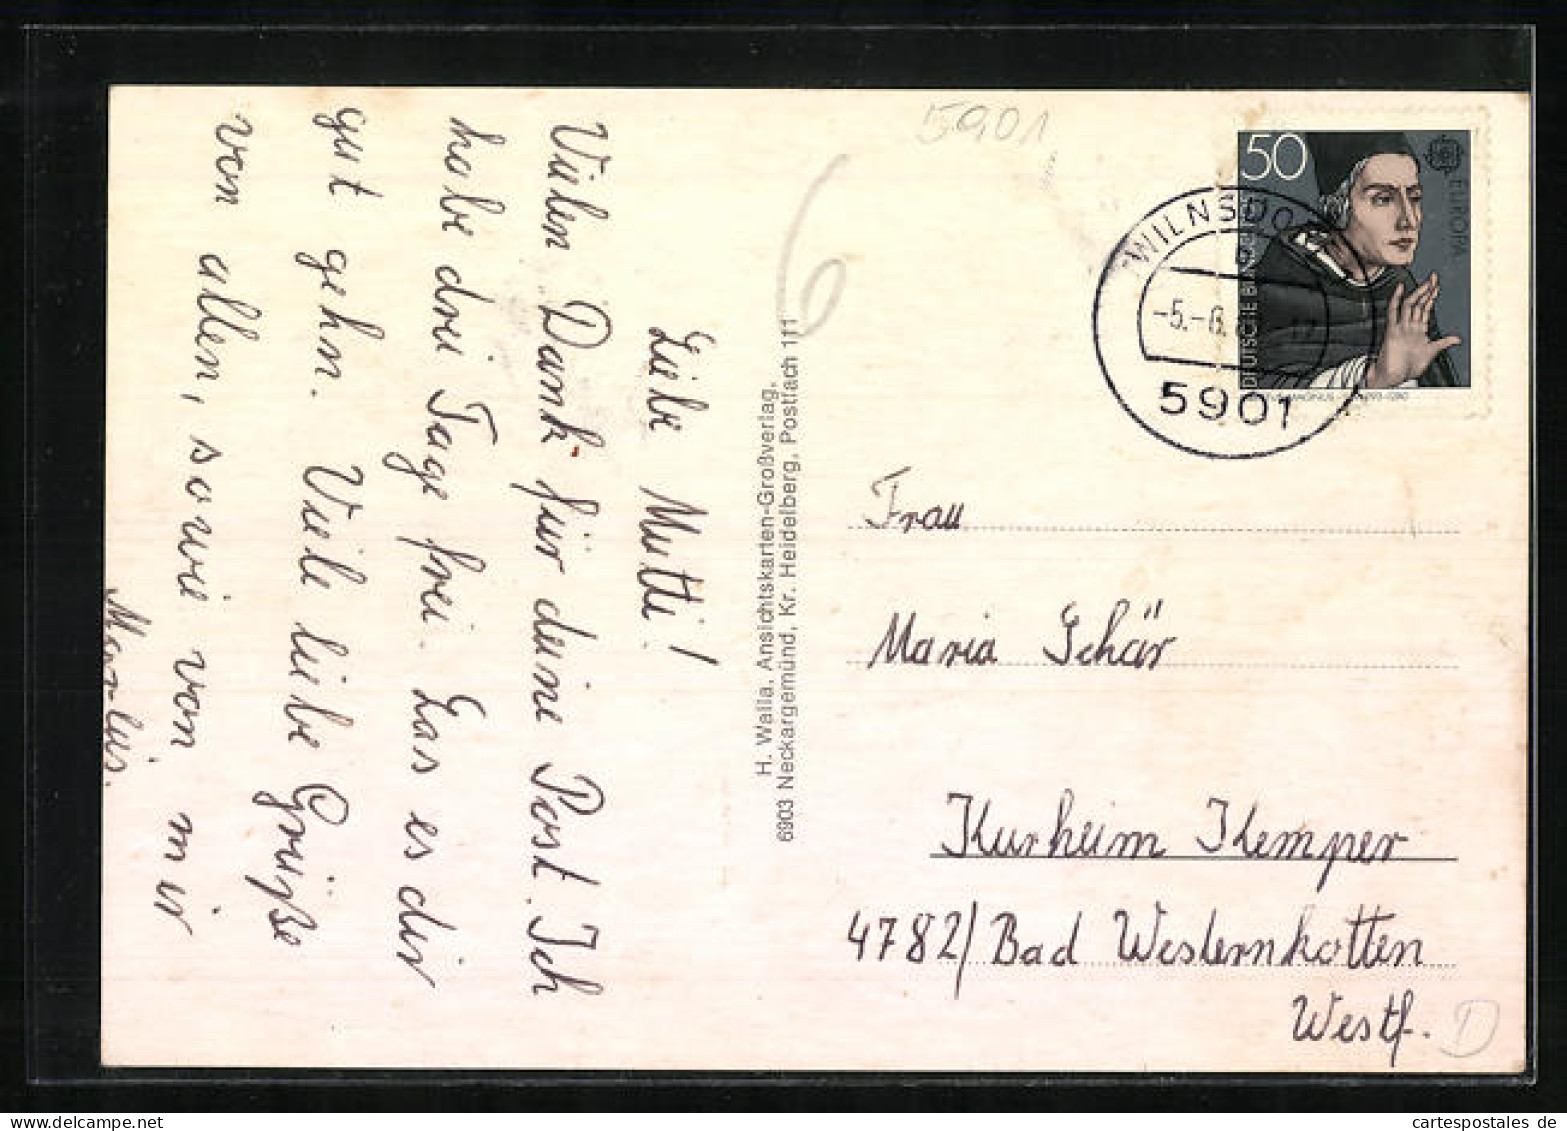 Liebe Mutti!
Vielen Dank für deine Post. Ich
habe drei Tage frei. Las es dir
gut gehn. Viele liebe Grüße
von allen, sowie von mir
Marlis.
H. Walla, Ansichtskarten-Großverlag,
6903 Neckargemünd, Kr. Heidelberg, Postfach 111
5901
6
50
EUROPA
DEUTSCHE
WILNSDO
-5.-6.
5901
Frau
Maria Schär
Kurheim Kemper
4782/Bad Westernkotten
Westf.
D
cartespostales de